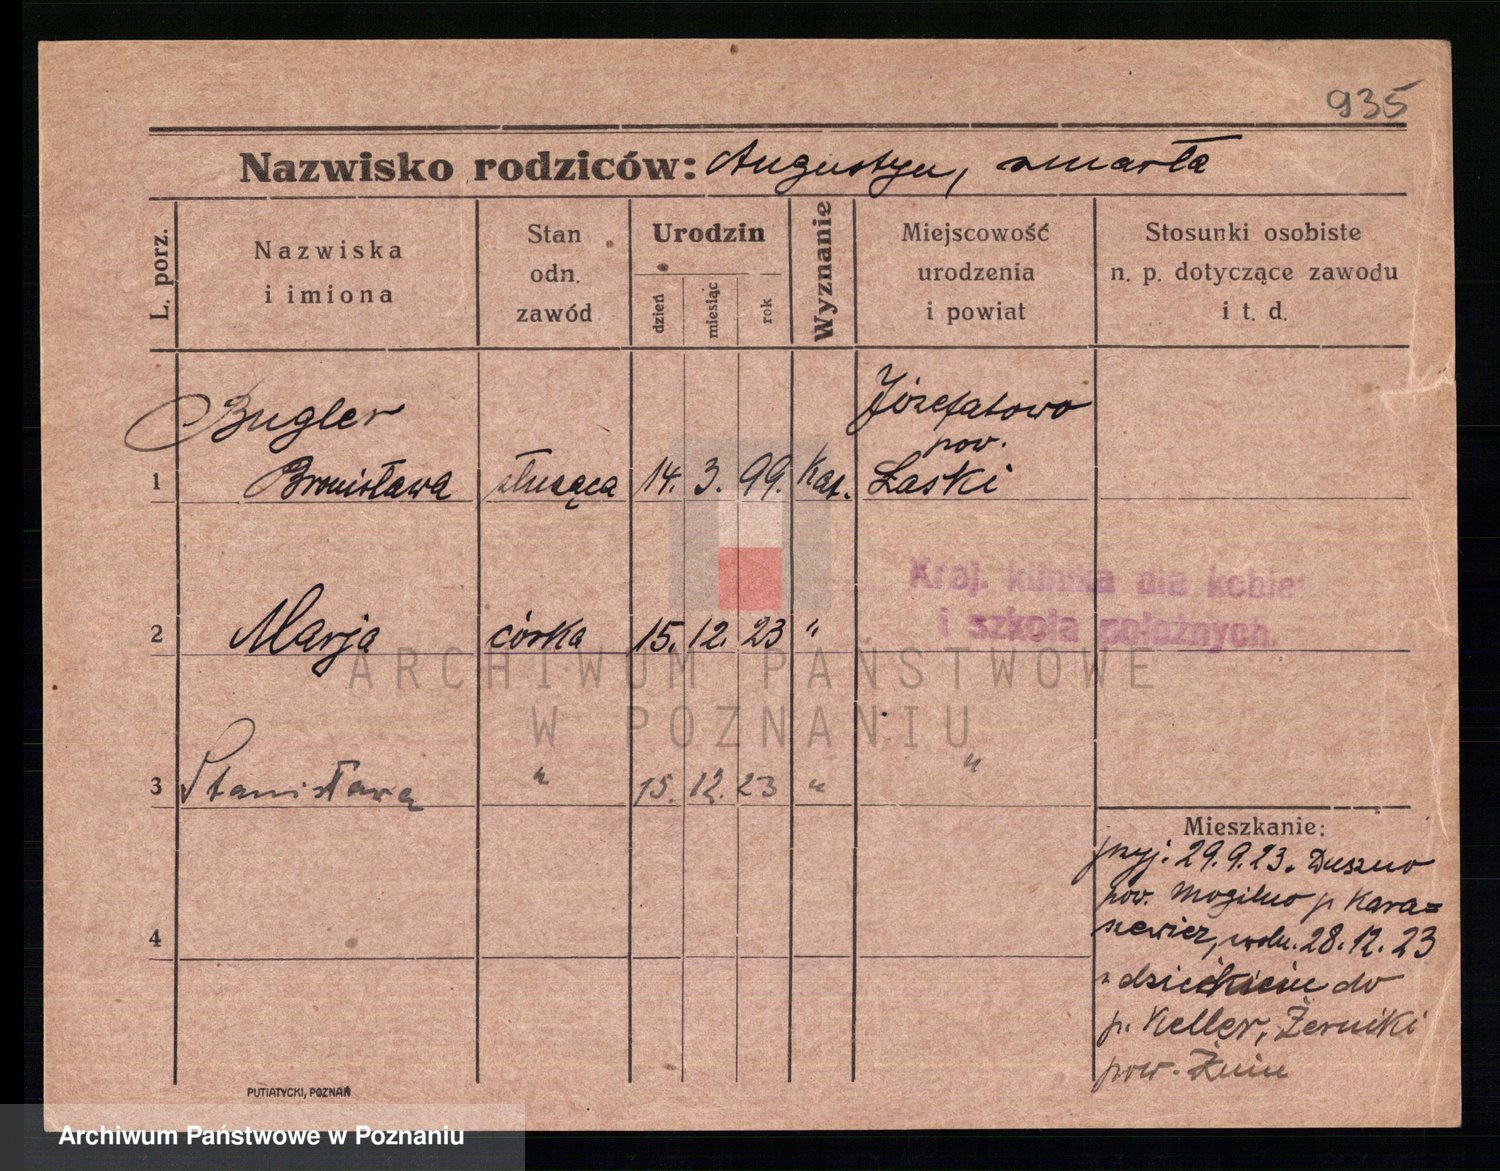 935
Nazwisko rodziców: Augustyn, zmarła
L. porz.
Nazwiska
i imiona
Stan
odn.
zawód
Urodzin
dzień
miesiąc
rok
Wyznanie
Miejscowość
urodzenia
i powiat
Stosunki osobiste
n. p. dotyczące zawodu
i t. d.
Bugler
Józefatowo
pow.
1 Bronisława służąca 14. 3. 99. Kat. Łaski
Kraj. klinika dla kobiet
i szkoła położnych.
2 Marja córka 15. 12. 23 "
ARCHIWUM PAŃSTWOWE
W POZNANIU
3 Stanisława " 15. 12. 23 " "
Mieszkanie:
przyj. 29.9.23. Duszno
pow. Mogilno p. Kara=
siewicz, 28.12.23
z dzieckiem do
p. Keller, Żerniki
pow. Żnin
4
PUTIATYCKI, POZNAŃ
Archiwum Państwowe w Poznaniu